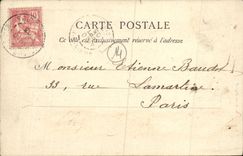 CARTE POSTALE
Ce côté est exclusivement réservé à l'adresse
14
Monsieur Etienne Baudot
33, rue Lamartine
Paris